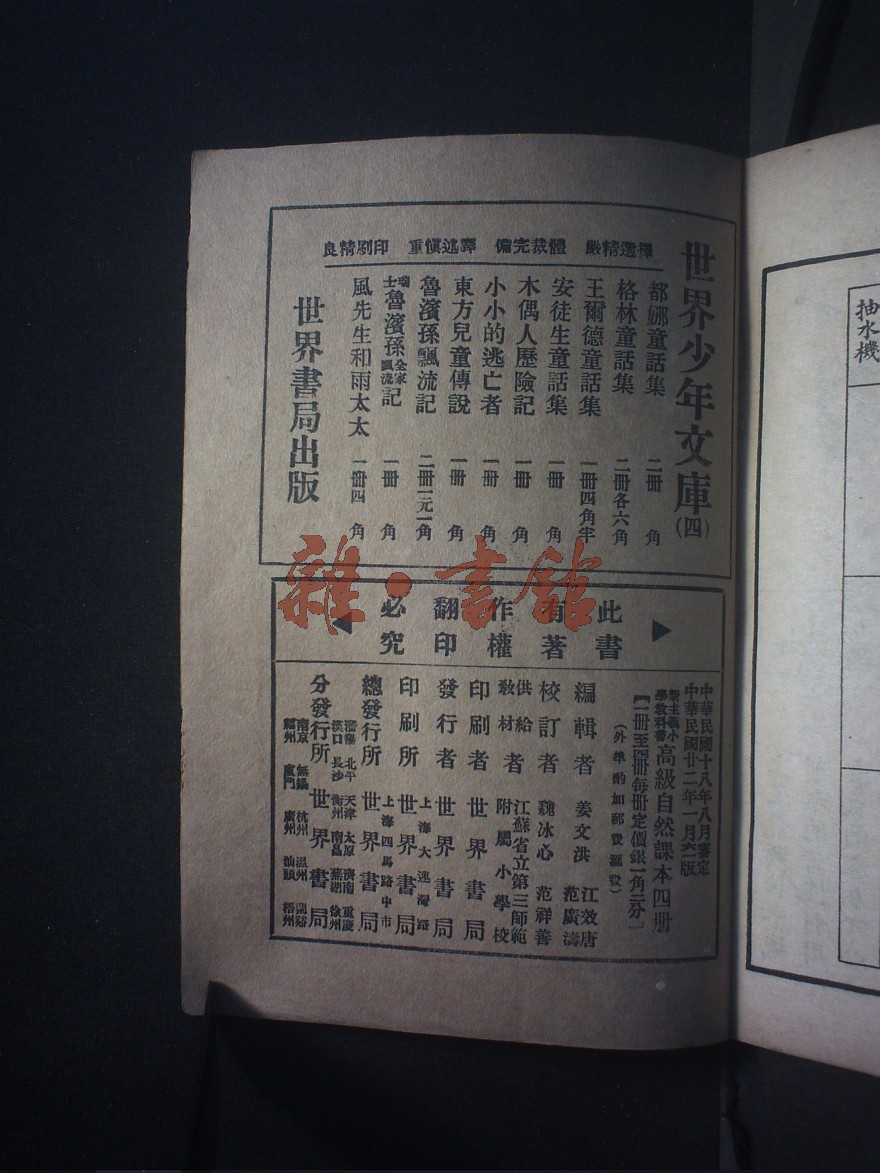 世界少年文庫(四)
擇選精嚴 體裁完備 譯述慎重 印刷精良
都娜童話集 二冊 角
格林童話集 二冊各六角
王爾德童話集 一冊四角半
安徒生童話集 一冊 角
木偶人歷險記 一冊 角
小小的逃亡者 一冊 角
東方兒童傳說 一冊 角
魯濱孫飄流記 二冊一元一角
瑞士魯濱孫全家飄流記 一冊 角
風先生和雨太太 一冊四 角
世界書局出版
此書有著作權翻印必究
中華民國十八年八月審定
中華民國廿二年一月 版
新主義小學教科書 高級自然課本四冊
【一冊至四冊每冊定價銀一角二分】
(外埠酌加郵費匯費)
編輯者 姜文洪 江效唐 范廣濤
校訂者 魏冰心 范祥善
供給教材者 江蘇省立第三師範附屬小學校
印刷者 世界書局
發行者 世界書局
印刷所 上海大連灣路 世界書局
總發行所 上海四馬路中市 世界書局
分發行所 世界書局
瀋陽 北平 天津 太原 濟南 重慶
漢口 長沙 衡州 南昌 蕪湖 徐州
南京 無錫 杭州 溫州 蘭谿
福州 廈門 廣州 汕頭 梧州
抽水機
雜·書館